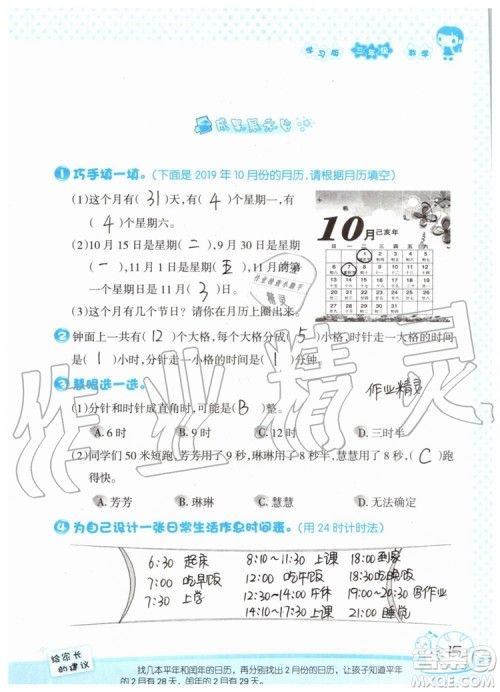 学习版 三年级 数学
成果展示台
1 巧手填一填。(下面是 2019 年 10 月份的月历,请根据月历填空)
(1)这个月有( 31 )天,有( 4 )个星期一,有
( 4 )个星期六。
(2)10 月 15 日是星期( 二 ),9 月 30 日是星期
( 一 ),11 月 1 日是星期( 五 ),11 月的第
一个星期日是 11 月( 3 )日。
(3)这个月有几个节日?请你在月历上圈出来。
10月 己亥年
日 一 二 三 四 五 六
2 钟面上一共有( 12 )个大格,每个大格分成( 5 )小格,时针走一大格的时间是
( 1 )小时,分针走一小格的时间是( 1 )分钟。
3 慧眼选一选。
(1)分针和时针成直角时,可能是( B )整。
A. 6 时 B. 9 时 C. 12 时 D. 三时半
(2)同学们 50 米短跑,芳芳用了 9 秒,琳琳用了 8 秒半,慧慧用了 8 秒,( C )跑
得快。
A. 芳芳 B. 琳琳 C. 慧慧 D. 无法确定
4 为自己设计一张日常生活作息时间表。(用 24 时计时法)
6:30 起床 8:10~11:30 上课 18:00 到家
7:00 吃早饭 12:00 吃午饭 18:30 吃晚饭
7:30 上学 12:30~14:00 午休 19:00~20:30 写作业
14:30~16:50 上课 21:00 睡觉
作业精灵
作业精灵
MXQE.COM
15
给家长的建议
找几本平年和闰年的日历,再分别找出 2 月份的日历,让孩子知道平年
的 2 月有 28 天,闰年的 2 月有 29 天。